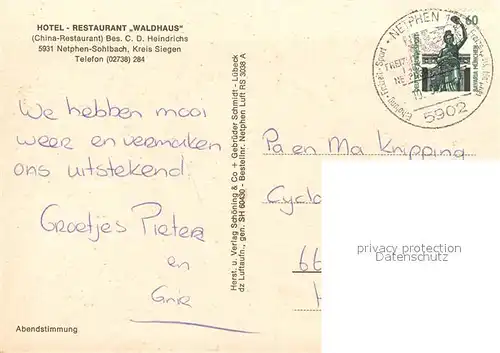 HOTEL - RESTAURANT „WALDHAUS"
(China-Restaurant) Bes. C. D. Heindrichs
5931 Netphen-Sohlbach, Kreis Siegen
Telefon (02738) 284
We hebben mooi
weer en vermaken
ons uitstekend.
Groetjes Pieter
en
Abendstimmung
Herst. u. Verlag Schöning & Co + Gebrüder Schmidt - Lübeck
dz Luftaufn., gen. SH 60430 - Bestellnr. Netphen Luft RS 3038 A
NETPHEN
5902
60
Pa en Ma Knipping
Cyclo
66
privacy protection
oldthing.de